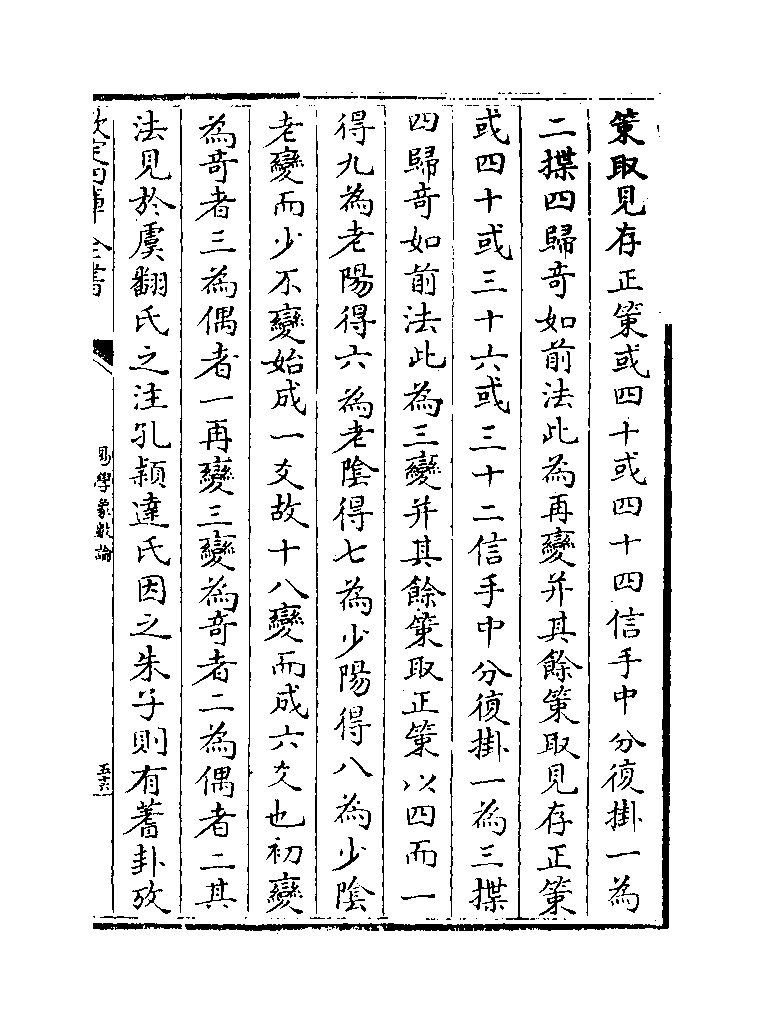 策取見存正策或四十或四十四信手中分復掛一為
二揲四歸奇如前法此為再變并其餘策取見存正策
或四十或三十六或三十二信手中分復掛一為三揲
四歸奇如前法此為三變并其餘策取正策以四而一
得九為老陽得六為老陰得七為少陽得八為少陰
老變而少不變始成一爻故十八變而成六爻也初變
為奇者三為偶者一再變三變為奇者二為偶者二其
法見於虞翻氏之注孔穎達氏因之朱子則有蓍卦攷
欽定四庫全書
易學象數論
五十六